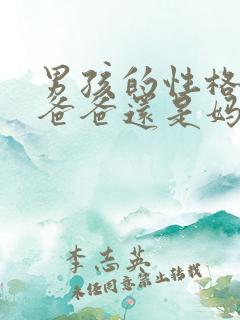 男孩的性格
爸爸还是妈
李志英
未经同意禁止转载